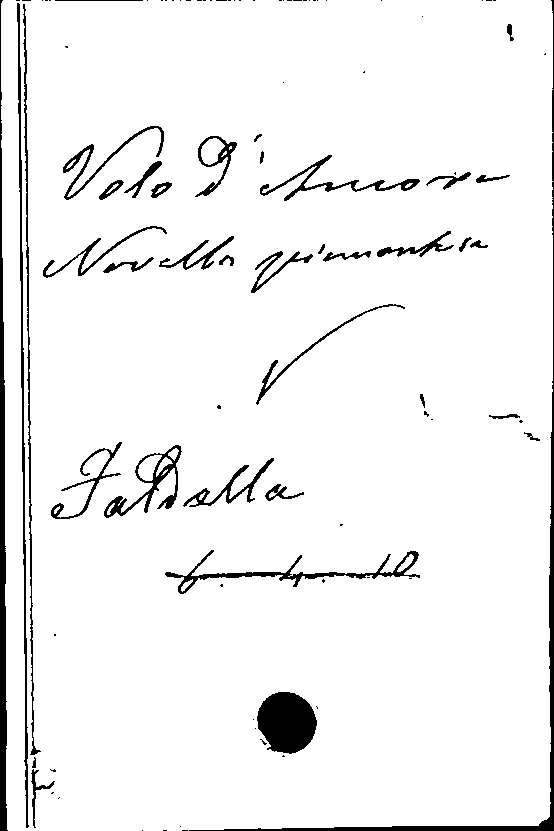 Volo D'Ancora
Novella piemontese
Faldella
6. 4. 10